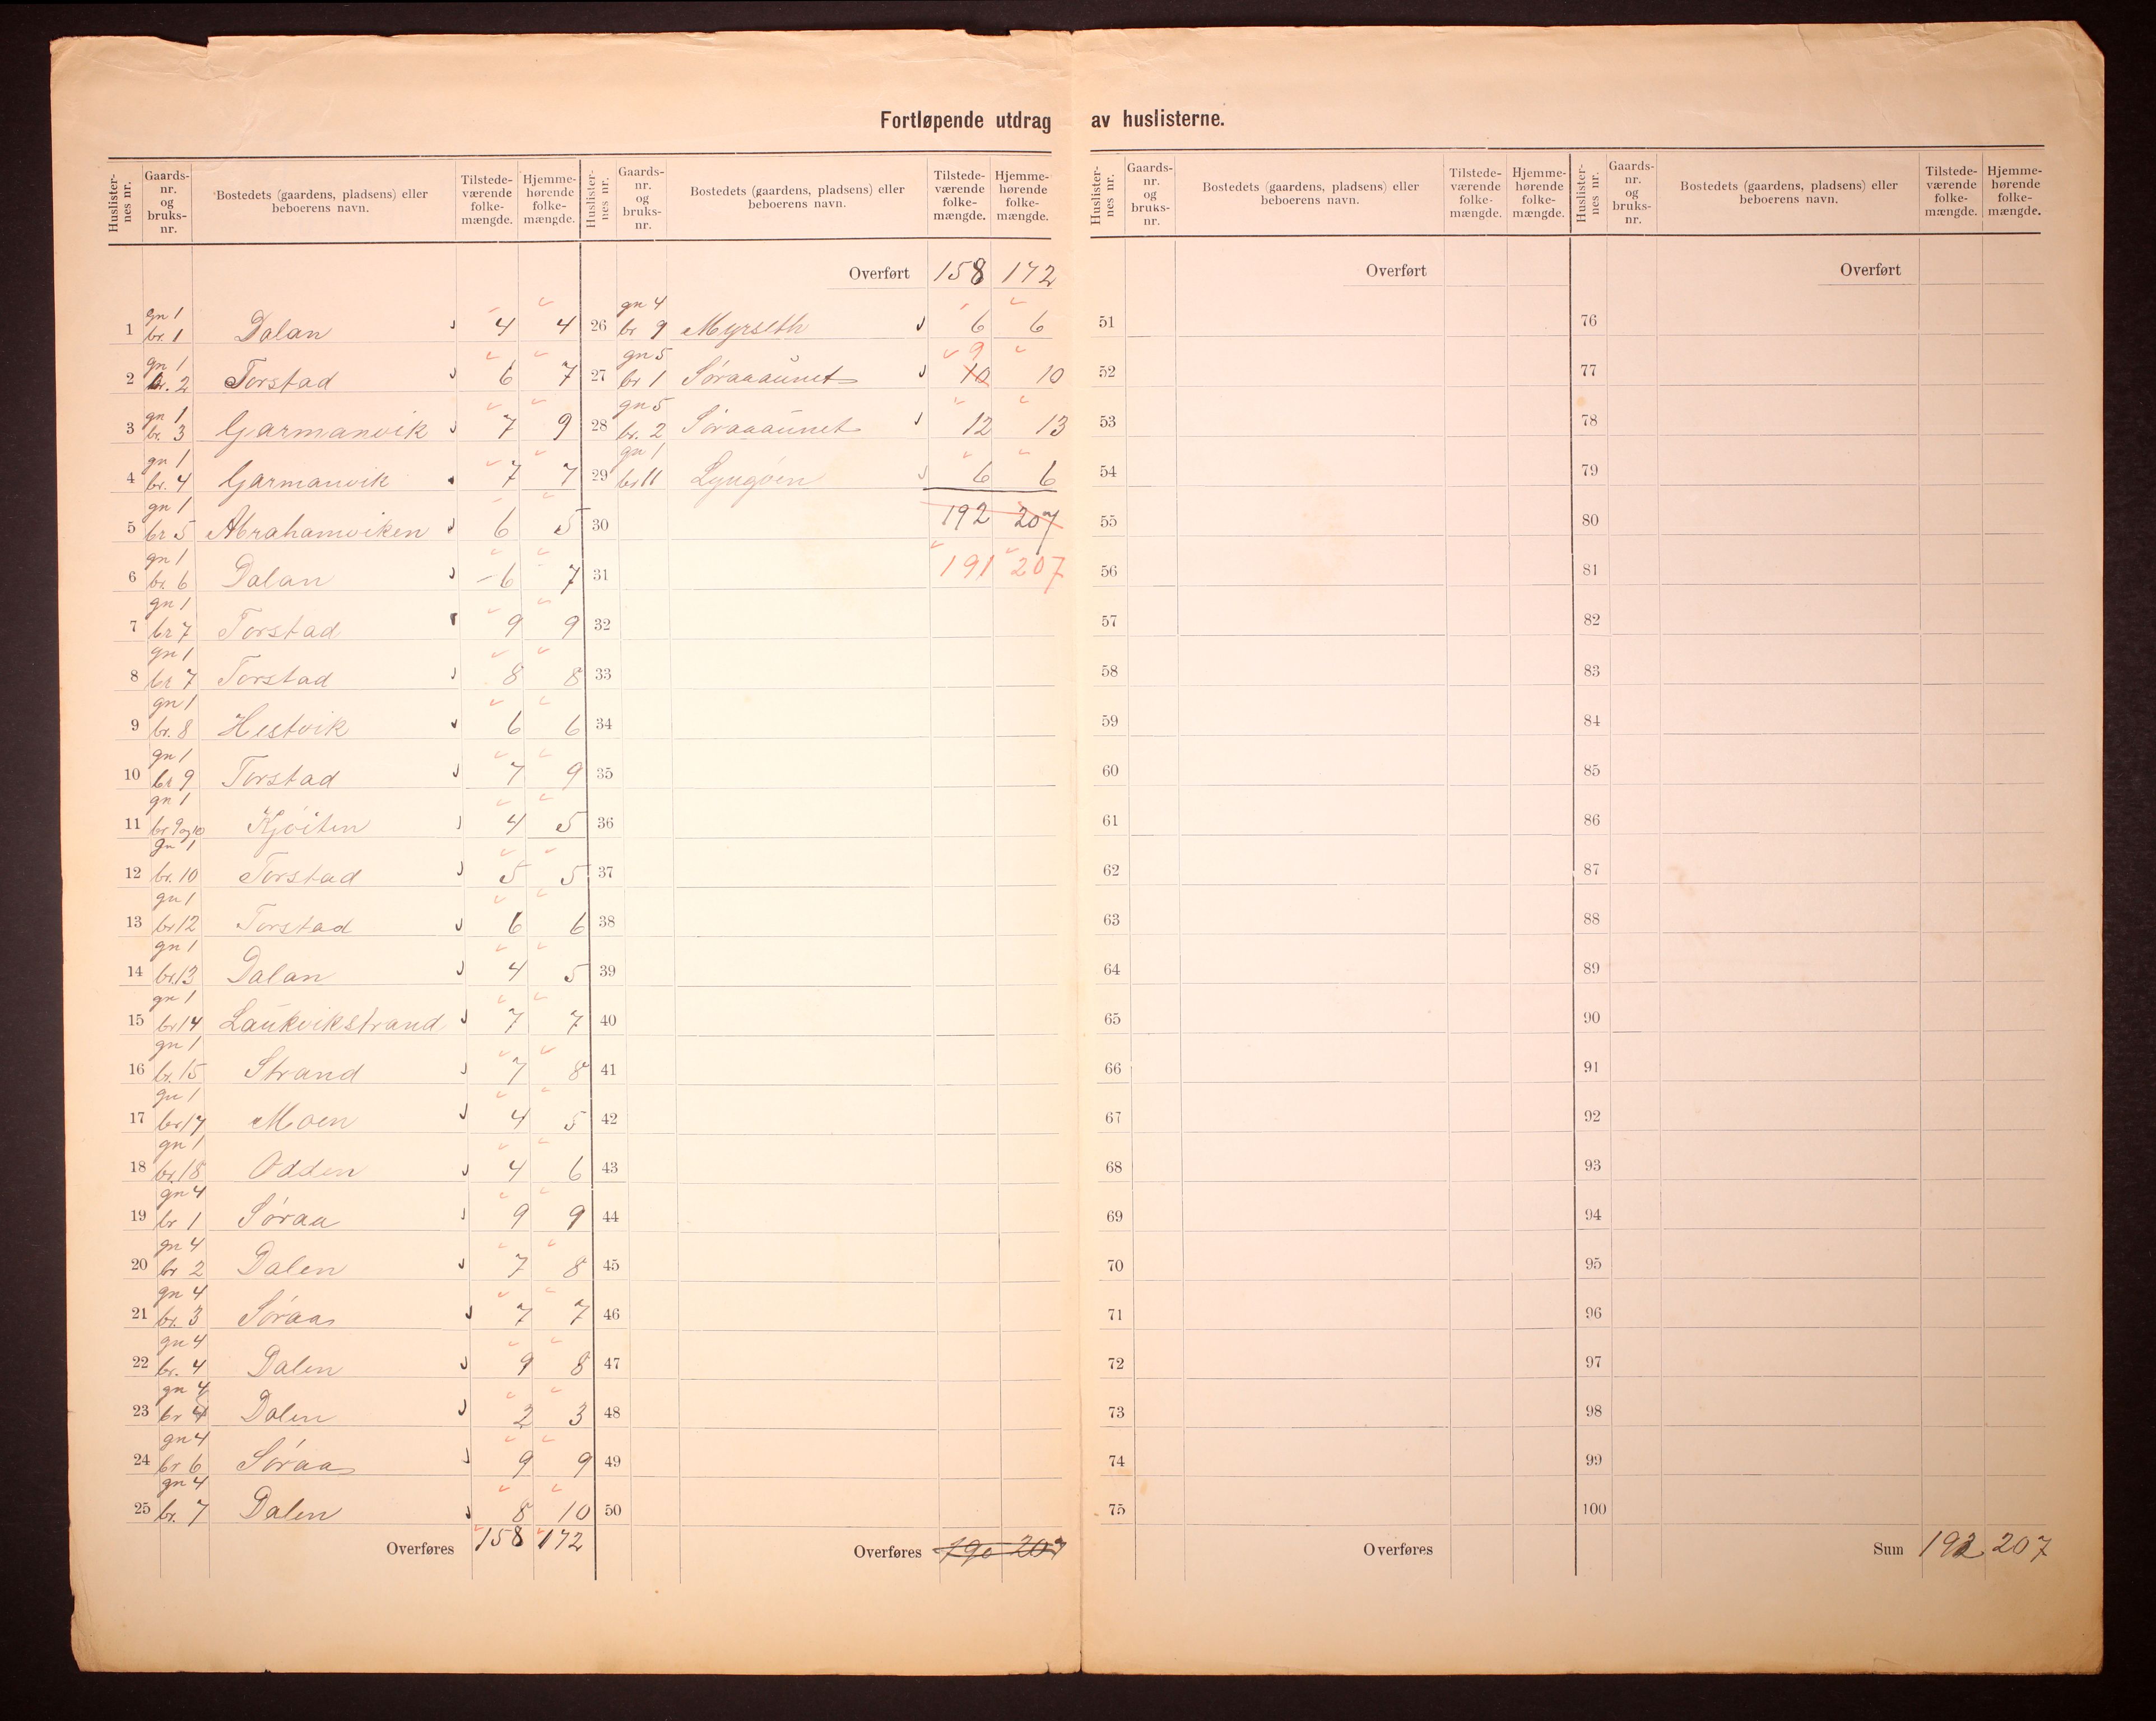 Fortløpende utdrag av huslisterne.
Huslister-nes nr. Gaards-nr. og bruks-nr. Bostedets (gaardens, pladsens) eller beboerens navn. Tilstede-værende folke-mængde. Hjemme-hørende folke-mængde.
gn 1
1 br. 1 Dalan 4 4
gn 1
2 br. 2 Torstad 6 7
gn 1
3 br. 3 Garmanvik 7 9
gn 1
4 br. 4 Garmanvik 7 7
gn 1
5 br 5 Abrahamviken 6 5
gn 1
6 br. 6 Dalan 6 7
gn 1
7 br 7 Torstad 9 9
gn 1
8 br 7 Torstad 8 8
gn 1
9 br. 8 Hestvik 6 6
gn 1
10 br 9 Torstad 7 9
gn 1
11 br 9 og 10 Kjöiten 4 5
gn 1
12 br. 10 Torstad 5 5
gn 1
13 br 12 Torstad 6 6
gn 1
14 br. 13 Dalan 4 5
gn 1
15 br 14 Laukvikstrand 7 7
gn 1
16 br. 15 Strand 7 8
gn 1
17 br 17 Moen 4 5
gn 1
18 br. 18 Odden 4 6
gn 4
19 br 1 Søraa 9 9
gn 4
20 br 2 Dalen 7 8
gn 4
21 br. 3 Søraa 7 7
gn 4
22 br. 4 Dalen 9 8
gn 4
23 br 4 Dalen 2 3
gn 4
24 br 6 Søraa 9 9
gn 4
25 br. 7 Dalen 8 10
Overføres 158 172
Huslister-nes nr. Gaards-nr. og bruks-nr. Bostedets (gaardens, pladsens) eller beboerens navn. Tilstede-værende folke-mængde. Hjemme-hørende folke-mængde.
Overført 158 172
gn 4
26 br 9 Myrseth 6 6
gn 5 9
27 br 1 Søraaaunet 10 10
gn 5
28 br. 2 Søraaaunet 12 13
gn 1
29 br 11 Lyngöen 6 6
30 192 207
31 191 207
32
33
34
35
36
37
38
39
40
41
42
43
44
45
46
47
48
49
50
Overføres 190 207
Huslister-nes nr. Gaards-nr. og bruks-nr. Bostedets (gaardens, pladsens) eller beboerens navn. Tilstede-værende folke-mængde. Hjemme-hørende folke-mængde.
Overført
51
52
53
54
55
56
57
58
59
60
61
62
63
64
65
66
67
68
69
70
71
72
73
74
75
Overføres
Huslister-nes nr. Gaards-nr. og bruks-nr. Bostedets (gaardens, pladsens) eller beboerens navn. Tilstede-værende folke-mængde. Hjemme-hørende folke-mængde.
Overført
76
77
78
79
80
81
82
83
84
85
86
87
88
89
90
91
92
93
94
95
96
97
98
99
100
Sum 192 207